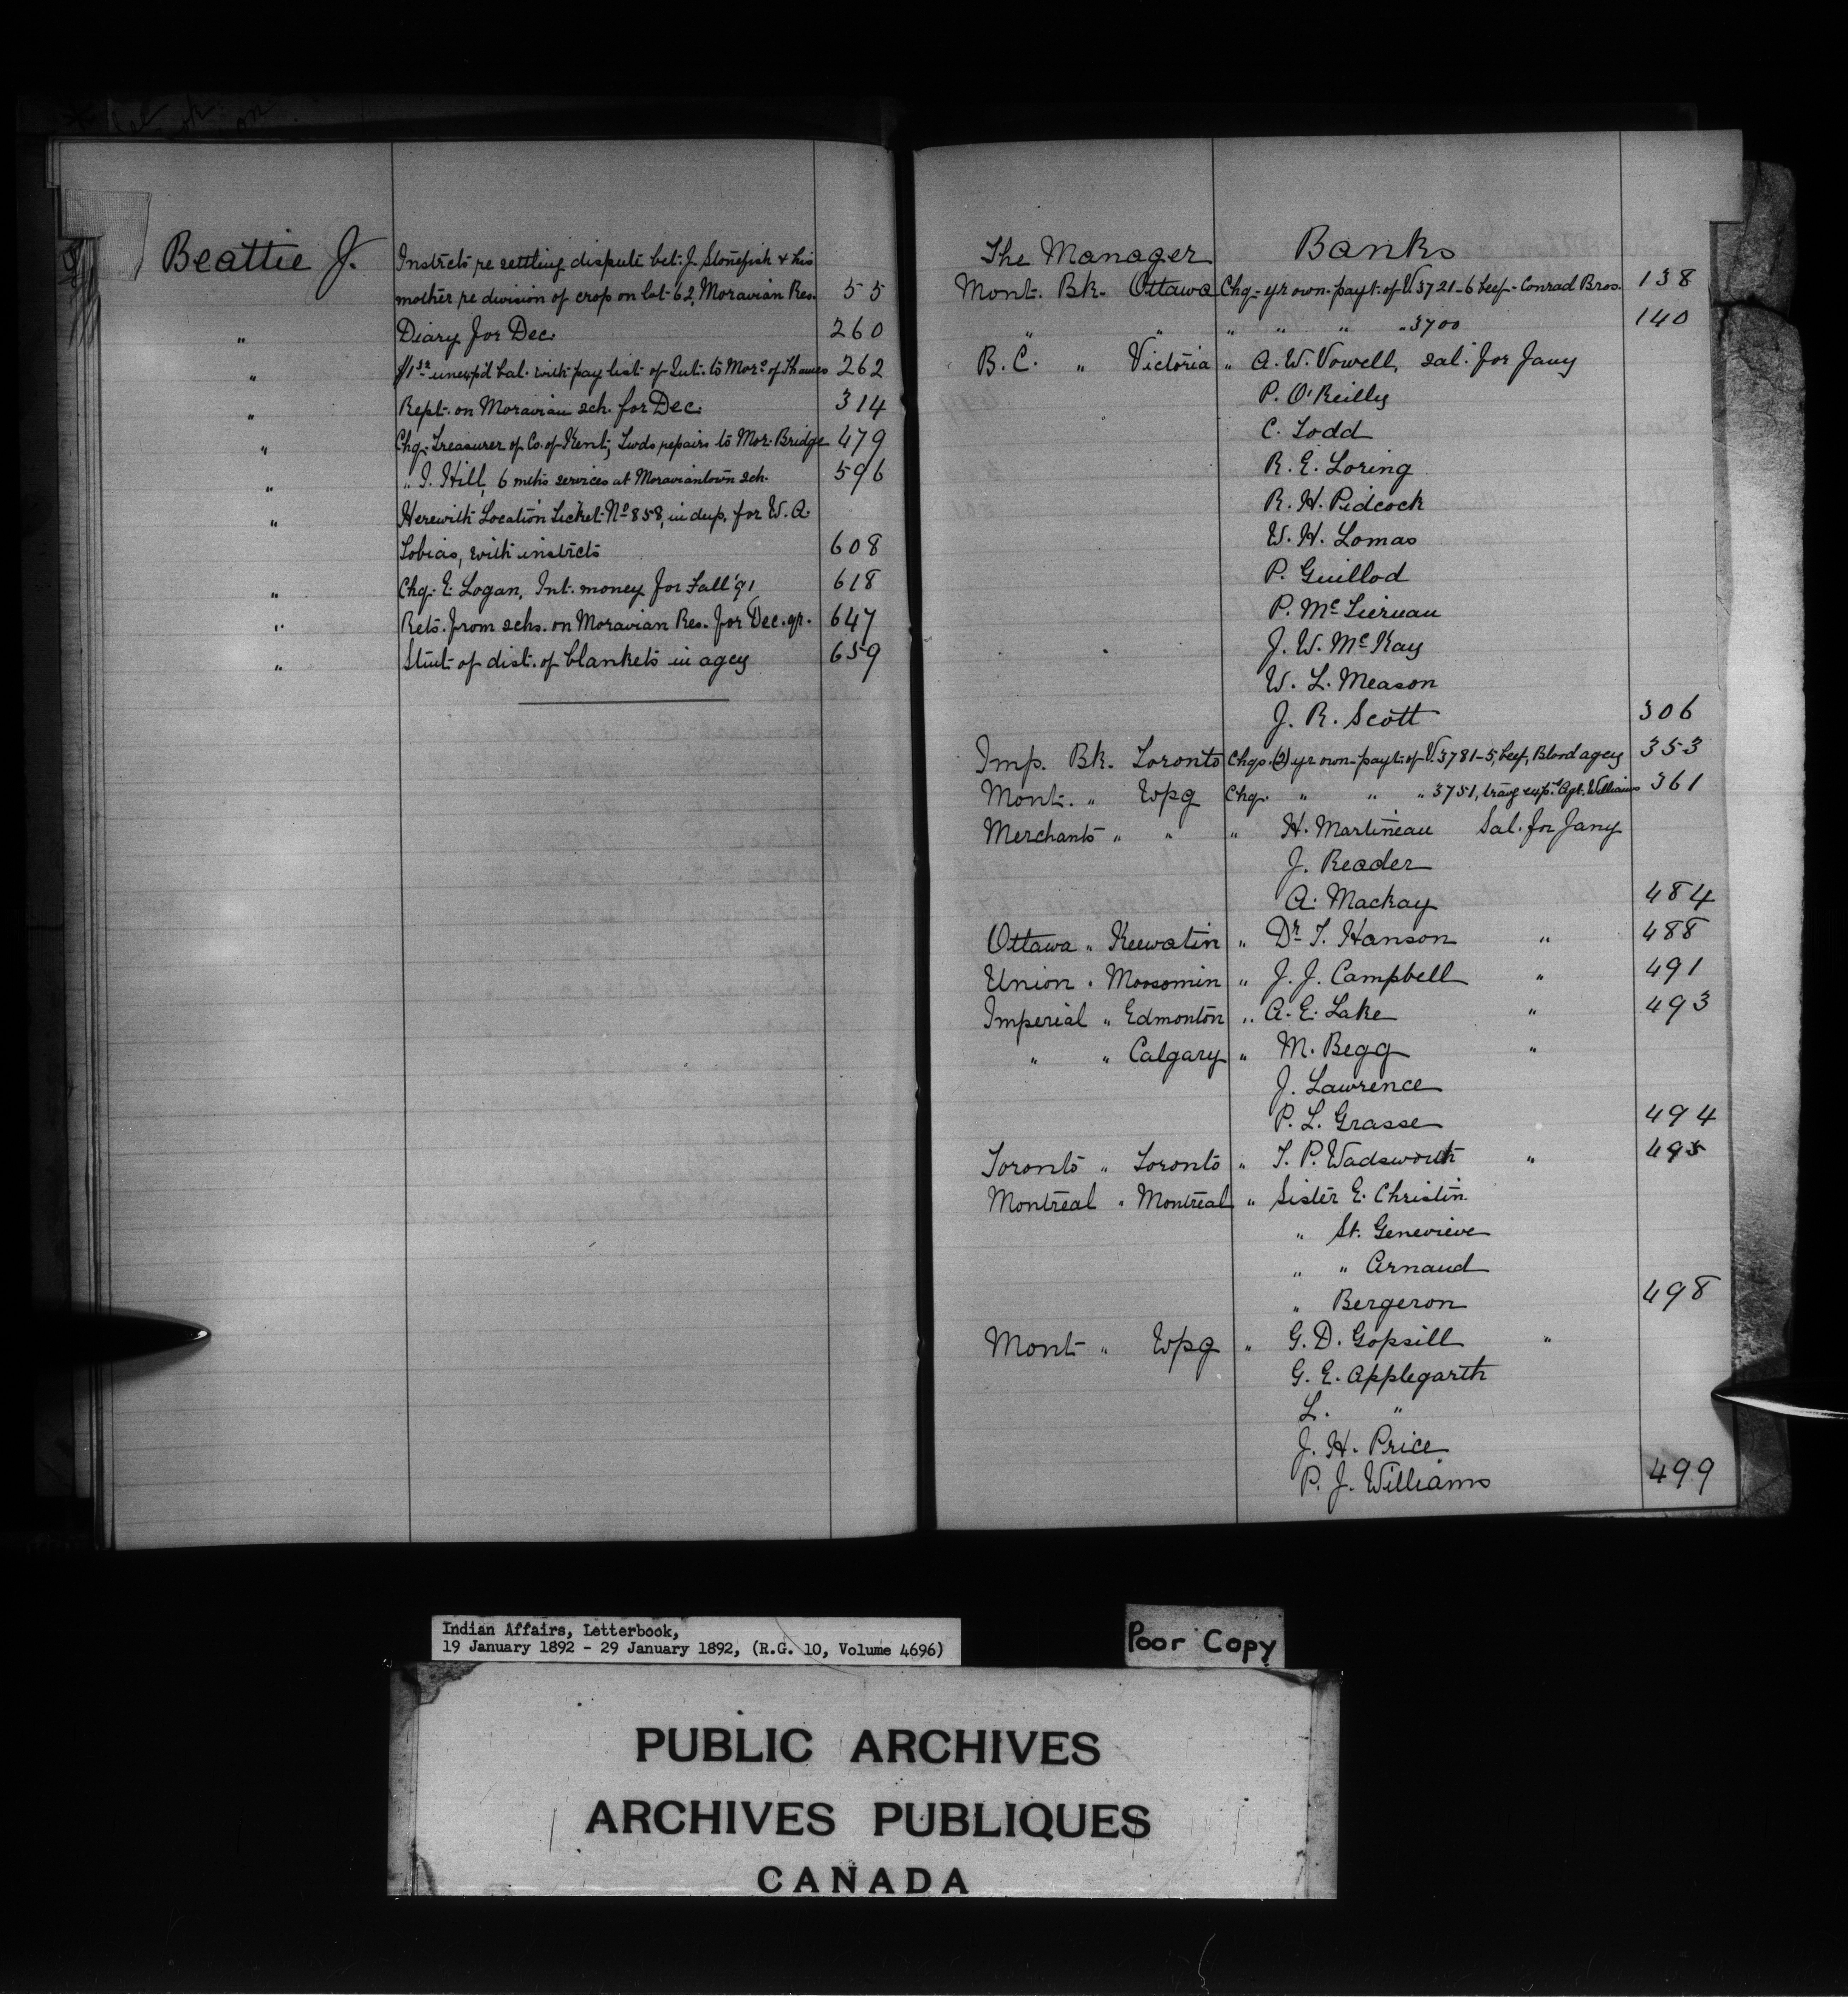 Beattie J. Instrcts re settling dispute bet. J. Stonefish & his
mother re division of crop on lot 62, Moravian Res. 55
" Diary for Dec. 260
" unexp'd bal. with pay list of Int. to Mors of Thames 262
" Rept. on Moravian sch. for Dec. 314
" Chq. Treasurer of Co. of Kent, Twds repairs to Mor. Bridge 479
" " I. Hill, 6 mths services at Moraviantown sch. 596
" Herewith Location Ticket No 858, in dup. for W. A.
Tobias, with instrcts 608
" Chq. E. Logan, Int. money for Fall '91 618
" Rets. from schs. on Moravian Res. for Dec. qr. 647
" Stmt of dist. of blankets in agcy 659
The Manager Banks
Mont. Bk. Ottawa Chq. yr own payt. of V. 3721-6 beef - Conrad Bros. 138
" " " " " " 3700 140
B.C. " Victoria " A. W. Vowell, sal. for Jany
P. O'Reilly
C. Todd
R. E. Loring
R. H. Pidcock
W. H. Lomas
P. Guillod
P. McTiernan
J. W. McKay
W. L. Meason
J. R. Scott 306
Imp. Bk. Toronto Chqs. (2) yr own payt. of V. 3781-5, beef, Blood agcy 353
Mont. " Wpg Chq. " " " 3751, travg exps. Agt. Williams 361
Merchants " " " H. Martineau Sal. for Jany
J. Reader
A. Mackay 484
Ottawa " Keewatin " Dr T. Hanson " 488
Union " Moosomin " J. J. Campbell " 491
Imperial " Edmonton " A. E. Lake " 493
" " Calgary " M. Begg "
J. Lawrence
P. L. Grasse 494
Toronto " Toronto " T. P. Wadsworth " 495
Montreal " Montreal " Sister E. Christin
" St. Genevieve
" " Arnaud
" Bergeron 498
Mont " Wpg " G. D. Gopsill "
G. E. Applegarth
L. "
J. H. Price
P. J. Williams 499
Indian Affairs, Letterbook,
19 January 1892 - 29 January 1892, (R.G. 10, Volume 4696)
Poor Copy
PUBLIC ARCHIVES
ARCHIVES PUBLIQUES
CANADA